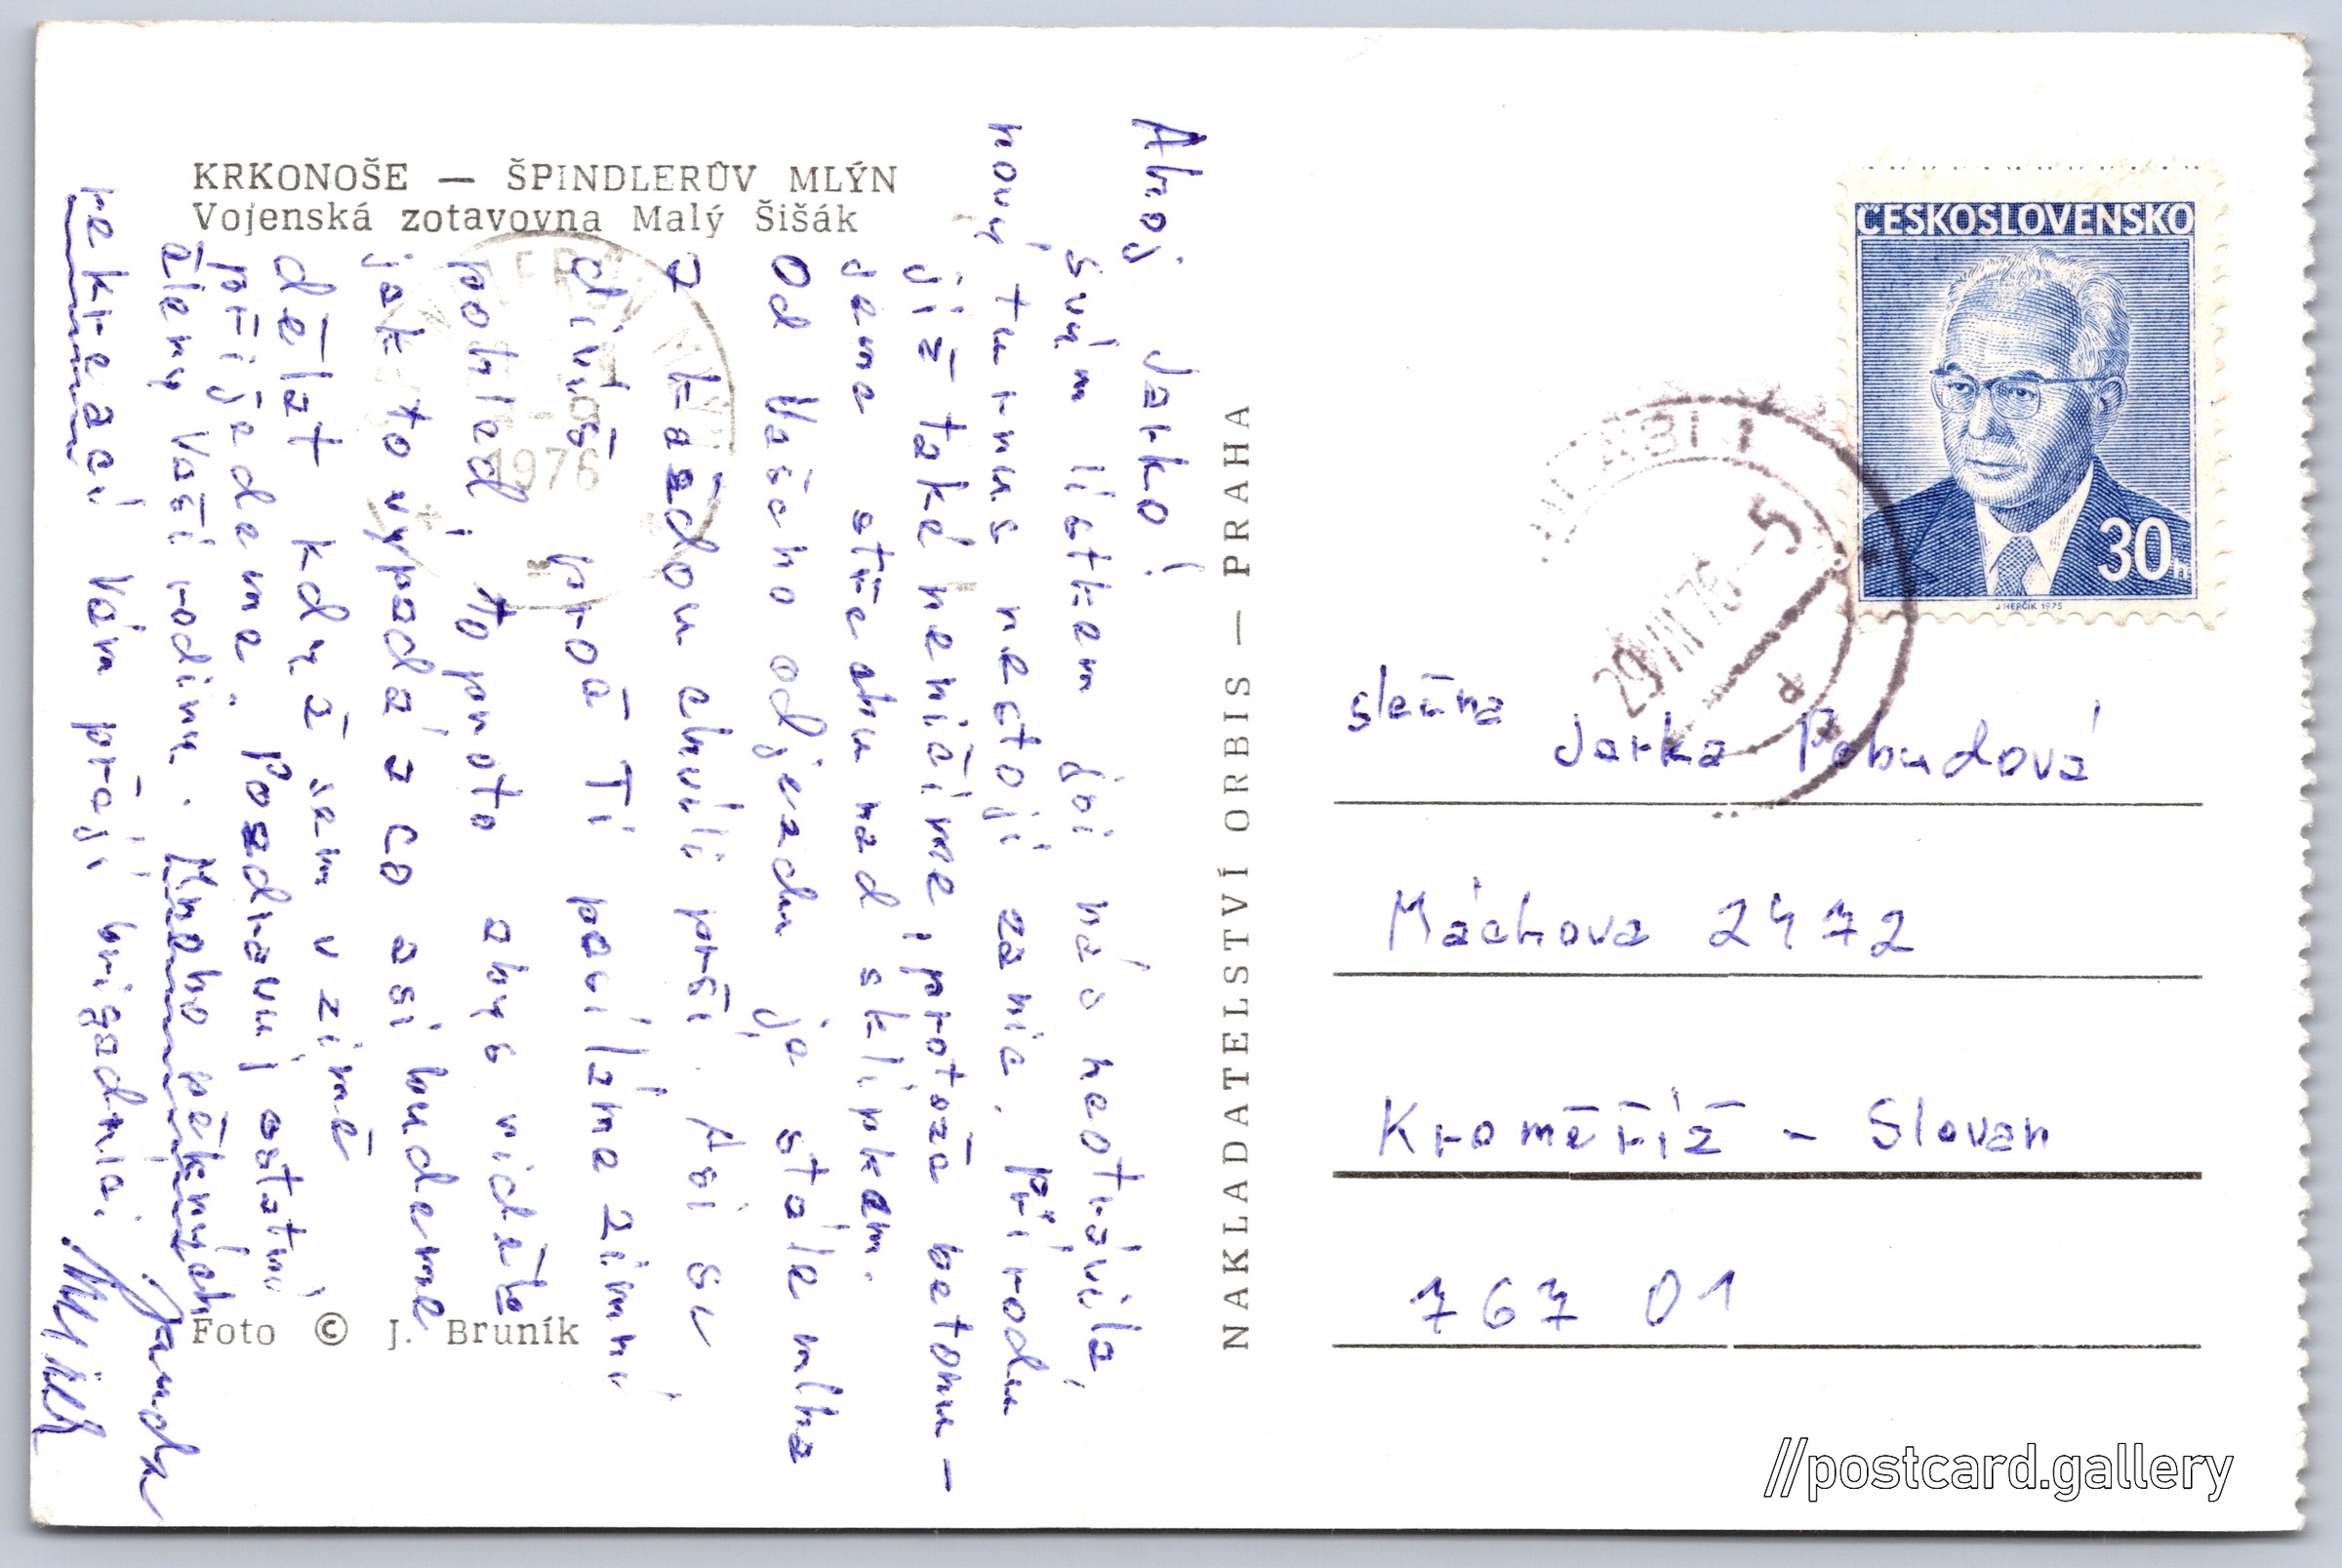 KRKONOŠE — ŠPINDLERŮV MLÝN
Vojenská zotavovna Malý Šišák
Ahoj Jarko!
Svým lístkem jsi nás neotrávila,
nový turnus nestojí za nic. Přírodu
již také neničíme, protože betonu-
jeme střechu nad sklípkem.
Od Vašeho odjezdu je stále mlha
a každou chvíli prší. Asi se
divíš proč Ti posíláme zimní
pohled, to proto abys viděla
jak to vypadá a co asi budeme
dělat když sem v zimě
přijedeme. Pozdravuj ostatní
členy Vaší rodiny. Mnoho pěkných
rekreací Vám přejí brigádníci
Foto © J. Bruník
NAKLADATELSTVÍ ORBIS — PRAHA
1976
ČESKOSLOVENSKO
30h
J.HERČÍK 1975
29.VIII.76-5
slečna
Jarka Pobudová
Máchova 2472
Kroměříž - Slovan
767 01
//postcard.gallery